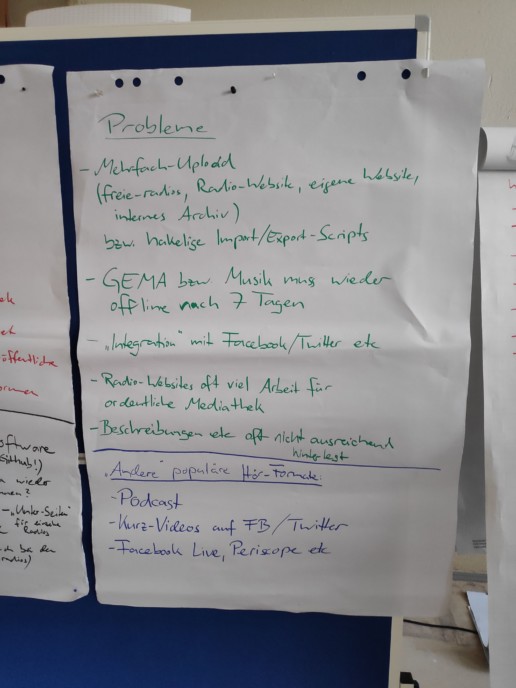 Probleme
- Mehrfach-Upload
(freie-radios, Radio-Website, eigene Website,
internes Archiv)
bzw. hakelige Import/Export-Scripts
- GEMA bzw. Musik muss wieder
offline nach 7 Tagen
- „Integration" mit Facebook/Twitter etc
- Radio-Websites oft viel Arbeit für
ordentliche Mediathek
- Beschreibungen etc oft nicht ausreichend
hinterlegt
„Andere" populäre Hör-Formate:
- Podcast
- Kurz-Videos auf FB/Twitter
- Facebook Live, Periscope etc
öffentliche
oftware
wieder
für einzelne
Radios